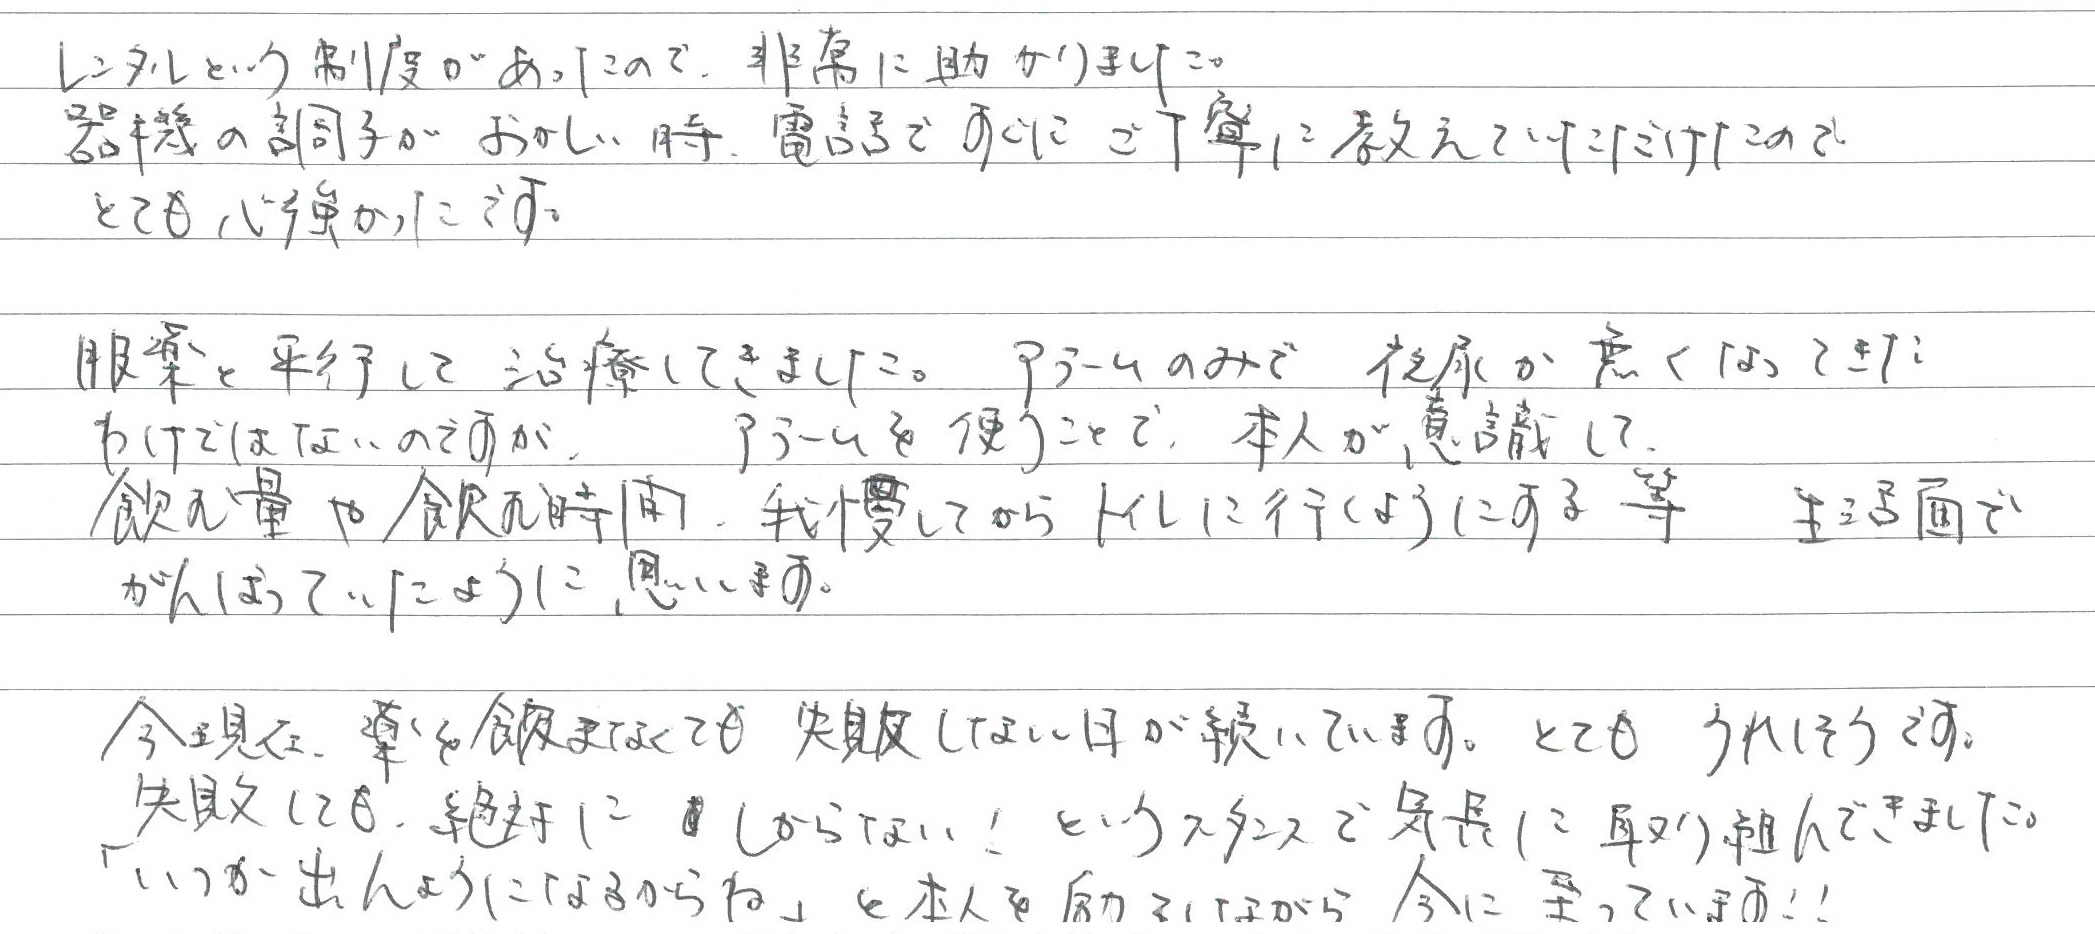 レンタルという制度があったので、非常に助かりました。
器機の調子がおかしい時、電話ですぐにご丁寧に教えていただけたので
とても心強かったです。
服薬と平行して治療してきました。アラームのみで夜尿が無くなってきた
わけではないのですが、アラームを使うことで、本人が意識して、
飲む量や飲む時間、我慢してからトイレに行くようにする等 生活面で
がんばっていたように思います。
今現在、薬を飲まなくても失敗しない日が続いています。とてもうれしそうです。
失敗しても、絶対にしからない!というスタンスで気長に取り組んできました。
「いつか出んようになるからね」と本人を励ましながら今に至っています!!